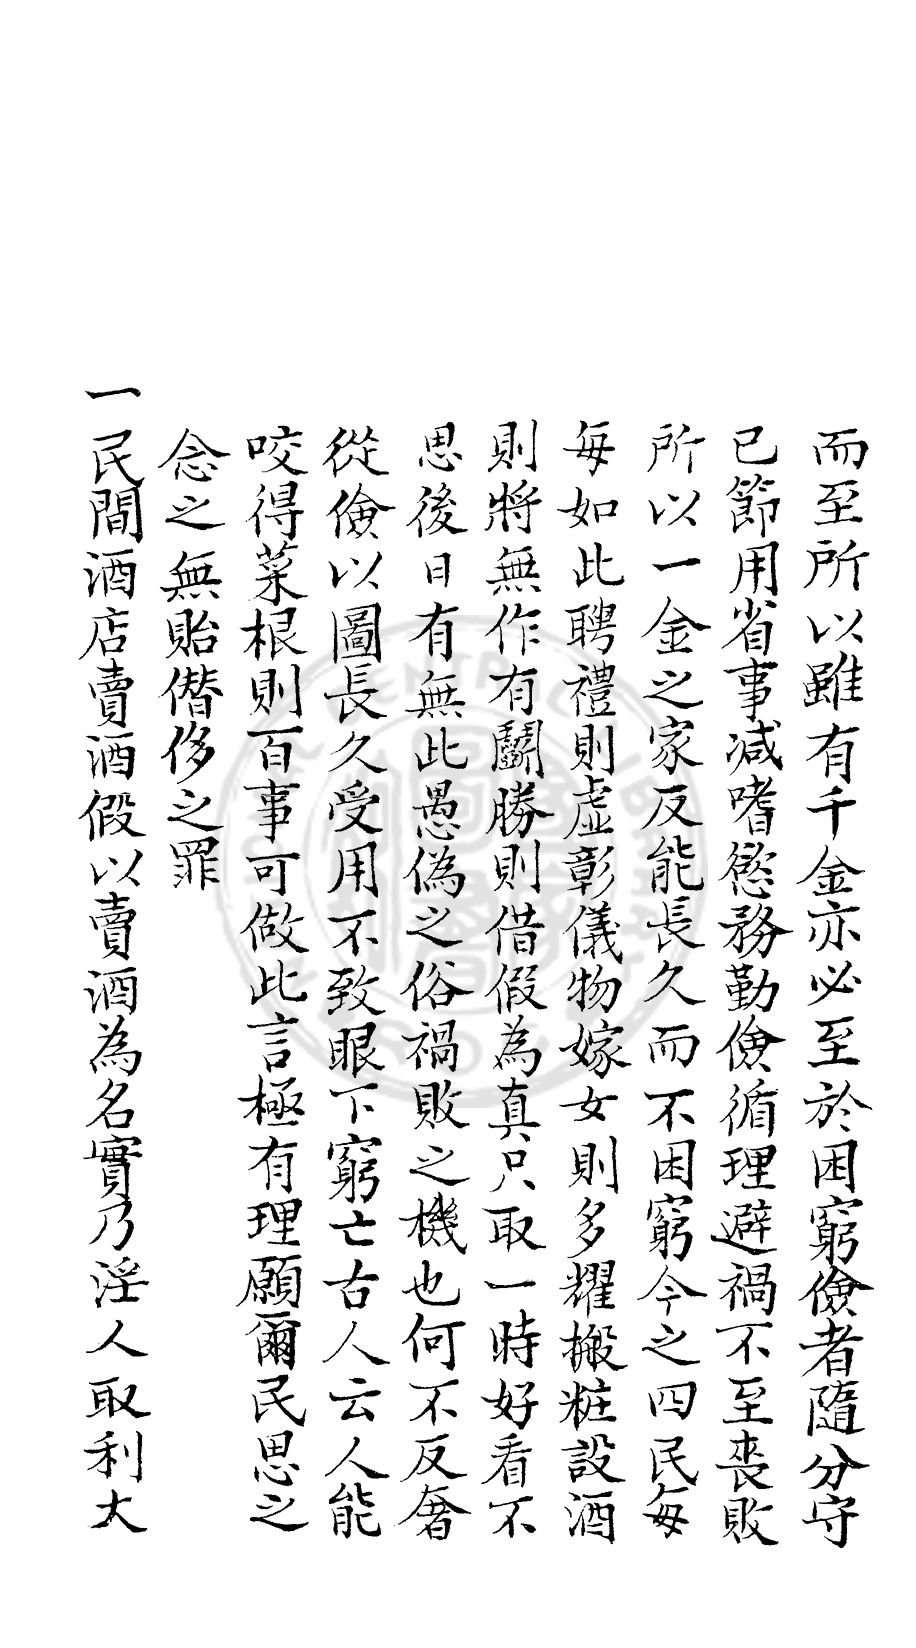 而至所以雖有千金亦必至於困窮儉者隨分守
已節用省事減嗜慾務勤儉循理避禍不至喪敗
所以一金之家反能長久而不困窮今之四民每
每如此聘禮則虛彰儀物嫁女則多耀搬粧設酒
則將無作有鬬勝則借假為真只取一時好看不
思後日有無此愚偽之俗禍敗之機也何不反奢
從儉以圖長久受用不致眼下窮亡古人云人能
咬得菜根則百事可做此言極有理願爾民思之
念之無貽僭侈之罪
一民間酒店賣酒假以賣酒為名實乃淫人取利大